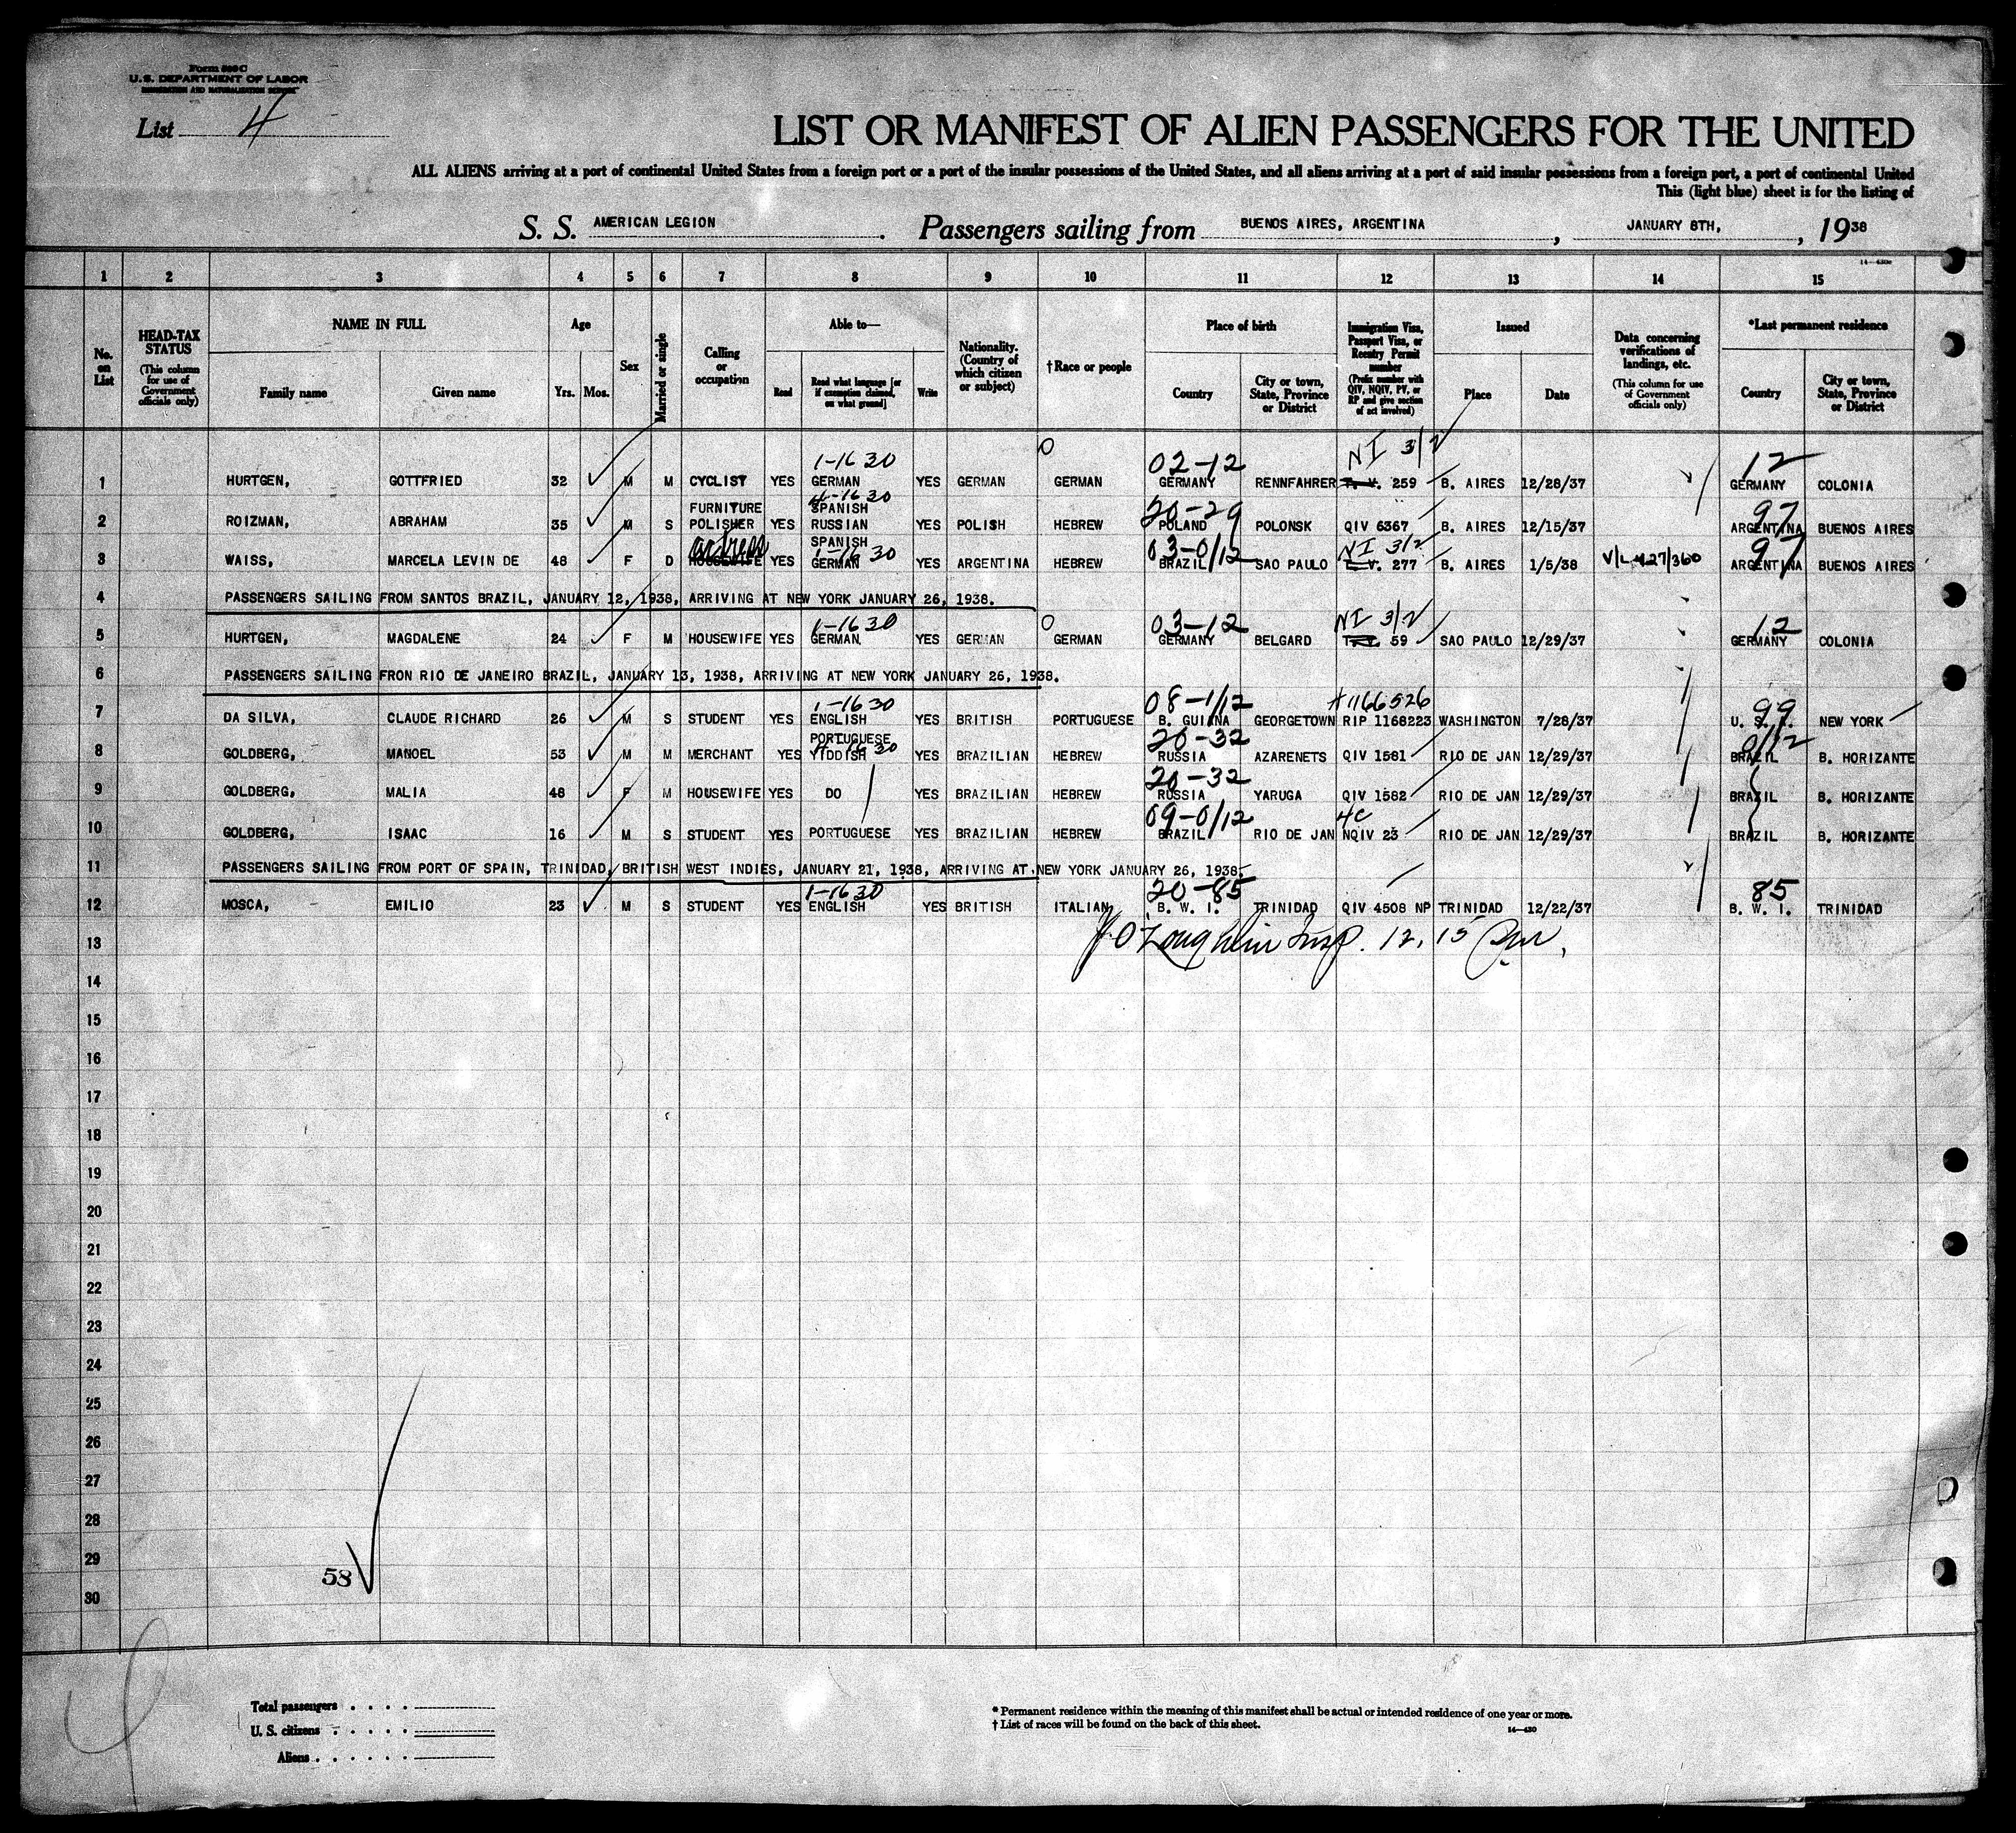 Form 500 C
U. S. DEPARTMENT OF LABOR
IMMIGRATION AND NATURALIZATION SERVICE
List 4
LIST OR MANIFEST OF ALIEN PASSENGERS FOR THE UNITED
ALL ALIENS arriving at a port of continental United States from a foreign port or a port of the insular possessions of the United States, and all aliens arriving at a port of said insular possessions from a foreign port, a port of continental United
This (light blue) sheet is for the listing of
S. S. AMERICAN LEGION. Passengers sailing from BUENOS AIRES, ARGENTINA, JANUARY 8TH, , 1938
1 2 3 4 5 6 7 8 9 10 11 12 13 14 15
No. on List
HEAD-TAX STATUS (This column for use of Government officials only)
NAME IN FULL Family name Given name
Age Yrs. Mos.
Sex
Married or single
Calling or occupation
Able to— Read Read what language [or if exemption claimed, on what ground] Write
Nationality. (Country of which citizen or subject)
†Race or people
Place of birth Country City or town, State, Province or District
Immigration Visa, Passport Visa, or Reentry Permit number (Prefix number with QIV, NQIV, PV, or RP and give section of act involved)
Issued Place Date
Data concerning verifications of landings, etc. (This column for use of Government officials only)
*Last permanent residence Country City or town, State, Province or District
1-16 30 02-12 NI 3/2 12
1 HURTGEN, GOTTFRIED 32 M M CYCLIST YES GERMAN YES GERMAN GERMAN GERMANY RENNFAHRER T. V. 259 B. AIRES 12/28/37 GERMANY COLONIA
FURNITURE 4-16 30 SPANISH 20-29 97
2 ROIZMAN, ABRAHAM 35 M S POLISHER YES RUSSIAN YES POLISH HEBREW POLAND POLONSK QIV 6367 B. AIRES 12/15/37 ARGENTINA BUENOS AIRES
actress SPANISH 1-16 30 03-0/12 NI 3/2 97
3 WAISS, MARCELA LEVIN DE 48 F D HOUSEWIFE YES GERMAN YES ARGENTINA HEBREW BRAZIL SAO PAULO T. V. 277 B. AIRES 1/5/38 V/L 427/360 ARGENTINA BUENOS AIRES
4 PASSENGERS SAILING FROM SANTOS BRAZIL, JANUARY 12, 1938, ARRIVING AT NEW YORK JANUARY 26, 1938.
1-16 30 03-12 NI 3/2 12
5 HURTGEN, MAGDALENE 24 F M HOUSEWIFE YES GERMAN. YES GERMAN GERMAN GERMANY BELGARD T. V. 59 SAO PAULO 12/29/37 GERMANY COLONIA
6 PASSENGERS SAILING FRON RIO DE JANEIRO BRAZIL, JANUARY 13, 1938, ARRIVING AT NEW YORK JANUARY 26, 1938.
1-16 30 08-1/12 #1166526 99
7 DA SILVA, CLAUDE RICHARD 26 M S STUDENT YES ENGLISH YES BRITISH PORTUGUESE B. GUIANA GEORGETOWN RIP 1168223 WASHINGTON 7/28/37 U. S. A. NEW YORK
PORTUGUESE 4-16 30 20-32 0/12
8 GOLDBERG, MANOEL 53 M M MERCHANT YES YIDDISH YES BRAZILIAN HEBREW RUSSIA AZARENETS QIV 1581 RIO DE JAN 12/29/37 BRAZIL B. HORIZANTE
20-32
9 GOLDBERG, MALIA 48 F M HOUSEWIFE YES DO YES BRAZILIAN HEBREW RUSSIA YARUGA QIV 1582 RIO DE JAN 12/29/37 BRAZIL B. HORIZANTE
09-0/12 4C
10 GOLDBERG, ISAAC 16 M S STUDENT YES PORTUGUESE YES BRAZILIAN HEBREW BRAZIL RIO DE JAN NQIV 23 RIO DE JAN 12/29/37 BRAZIL B. HORIZANTE
11 PASSENGERS SAILING FROM PORT OF SPAIN, TRINIDAD, BRITISH WEST INDIES, JANUARY 21, 1938, ARRIVING AT NEW YORK JANUARY 26, 1938.
1-16 30 20-85 85
12 MOSCA, EMILIO 23 M S STUDENT YES ENGLISH YES BRITISH ITALIAN B. W. I. TRINIDAD QIV 4508 NP TRINIDAD 12/22/37 B. W. I. TRINIDAD
13 O'Loughlin Insp. 12,15
14
15
16
17
18
19
20
21
22
23
24
25
26
27
28
29
58
30
Total passengers . . . .
U. S. citizens . . . . .
Aliens . . . . . .
* Permanent residence within the meaning of this manifest shall be actual or intended residence of one year or more.
† List of races will be found on the back of this sheet.
14—430